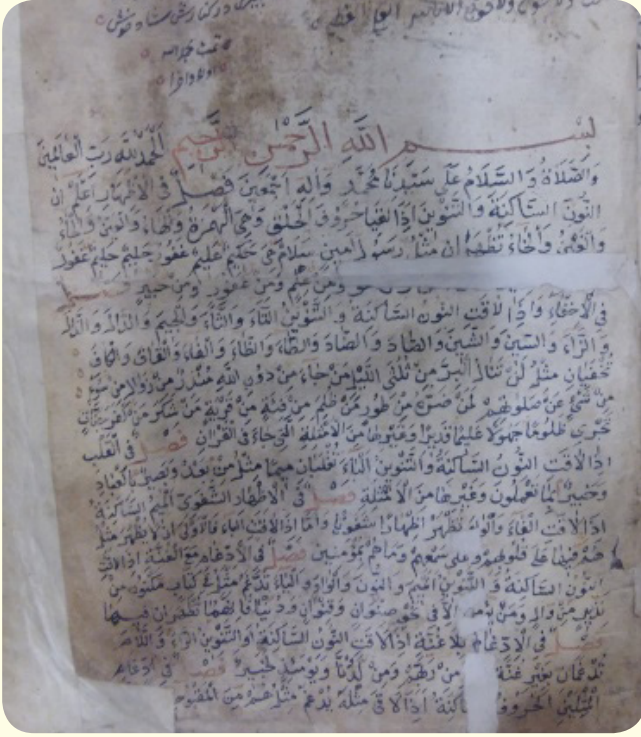 ولا قوة الا بالله العلي العظيم
تمت
بسم الله الرحمن الرحيم الحمد لله رب العالمين
والصلاة والسلام على سيدنا محمد وآله اجمعين فصل في الاظهار اعلم ان
النون الساكنة والتنوين اذا لقيا حروف الحلق وهي الهمزة والهاء والعين والحاء
والغين والخاء تظهران مثل رسول امين سلام هي حكيم عليم غفور حليم حليم غفور
ومن غفور ومن خبير فصل
في الاخفاء واذا لاقت النون الساكنة والتنوين التاء والثاء والجيم والدال والذال
والزاء والسين والشين والصاد والضاد والطاء والظاء والفاء والقاف والكاف
تخفيان مثل لن تنالوا البر من ثلثي الليل من جاء من دون الله منذر من زوال من سوء
من شيء عن صلوتهم لمن ضره من طور من ظلم من فئة من قرية من شكر من
تجري ظلوما جهولا عليما قديرا وغيرها من الامثلة التي جاء في القرآن فصل في القلب
اذا لاقت النون الساكنة والتنوين الباء تقلبان ميما مثل من بعد وبصير بالعباد
وخبير بما تعملون وغيرها من الامثلة فصل في الاظهار الشفوي الميم الساكنة
اذا لاقت الفاء والواو تظهر اظهارا شفويا واما اذا لاقت الباء فالاولى ان لا يظهر مثل
هم فيها على قلوبهم وعلى سمعهم وما هم بمؤمنين فصل في الادغام مع الغنة اذا لاقت
النون الساكنة والتنوين الميم والنون والواو والياء تدغم مثل في كتاب مكنون من
نذير من وال ومن يعمل الا في نحو صنوان وقنوان ودنيا فانهما تظهران فيها
فصل في الادغام بلا غنة اذا لاقت النون الساكنة او التنوين الراء واللام
تدغمان بغير غنة من ربهم ومن لدنا ويومئذ لخبير فصل في ادغام
المثلين الحروف الساكنة اذا لاقى مثله يدغم مثل هم من